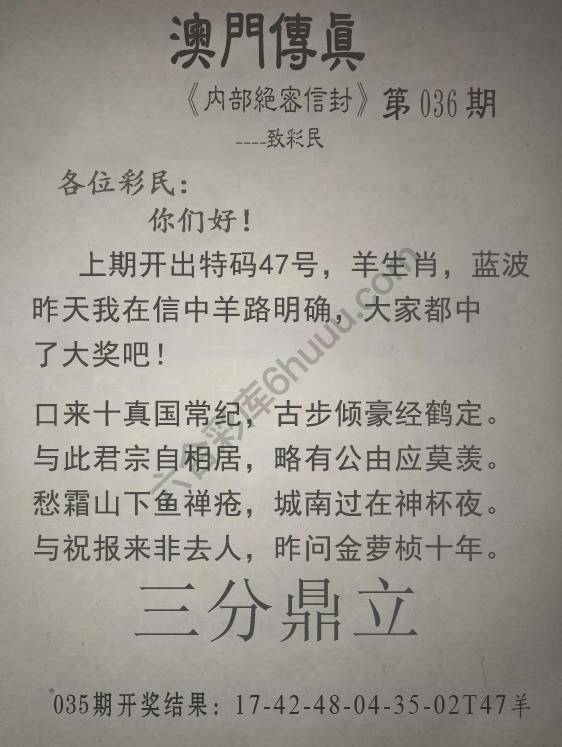 澳門傳真
《内部絕密信封》第036期
----致彩民
各位彩民：
你们好！
上期开出特码47号，羊生肖，蓝波
昨天我在信中羊路明确，大家都中
了大奖吧！
口来十真国常纪，古步倾豪经鹤定。
与此君宗自相居，略有公由应莫羡。
愁霜山下鱼禅疮，城南过在神杯夜。
与祝报来非去人，昨问金萝桢十年。
三分鼎立
035期开奖结果：17-42-48-04-35-02T47羊
六合彩库6huuu.com